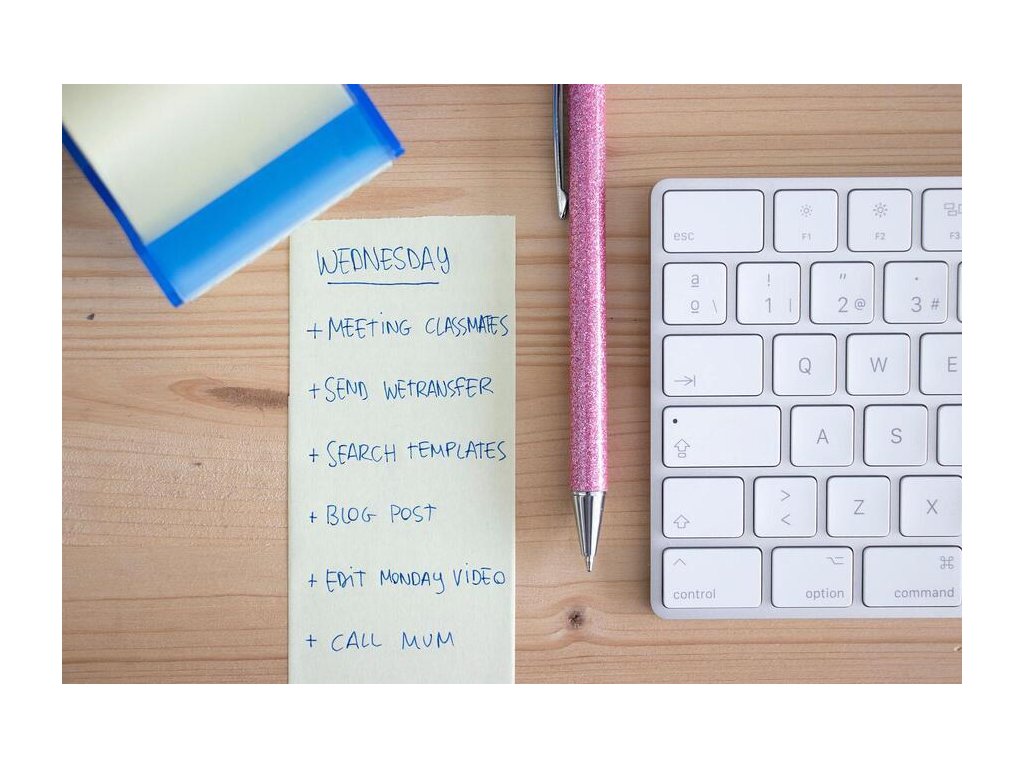 WEDNESDAY
+ MEETING CLASSMATES
+ SEND WETRANSFER
+ SEARCH TEMPLATES
+ BLOG POST
+ EDIT MONDAY VIDEO
+ CALL MUM
esc F1 F2 F3
ª º \ ! 1 | " 2 @ · 3 #
Q W E
A S
> < Z X
control option command